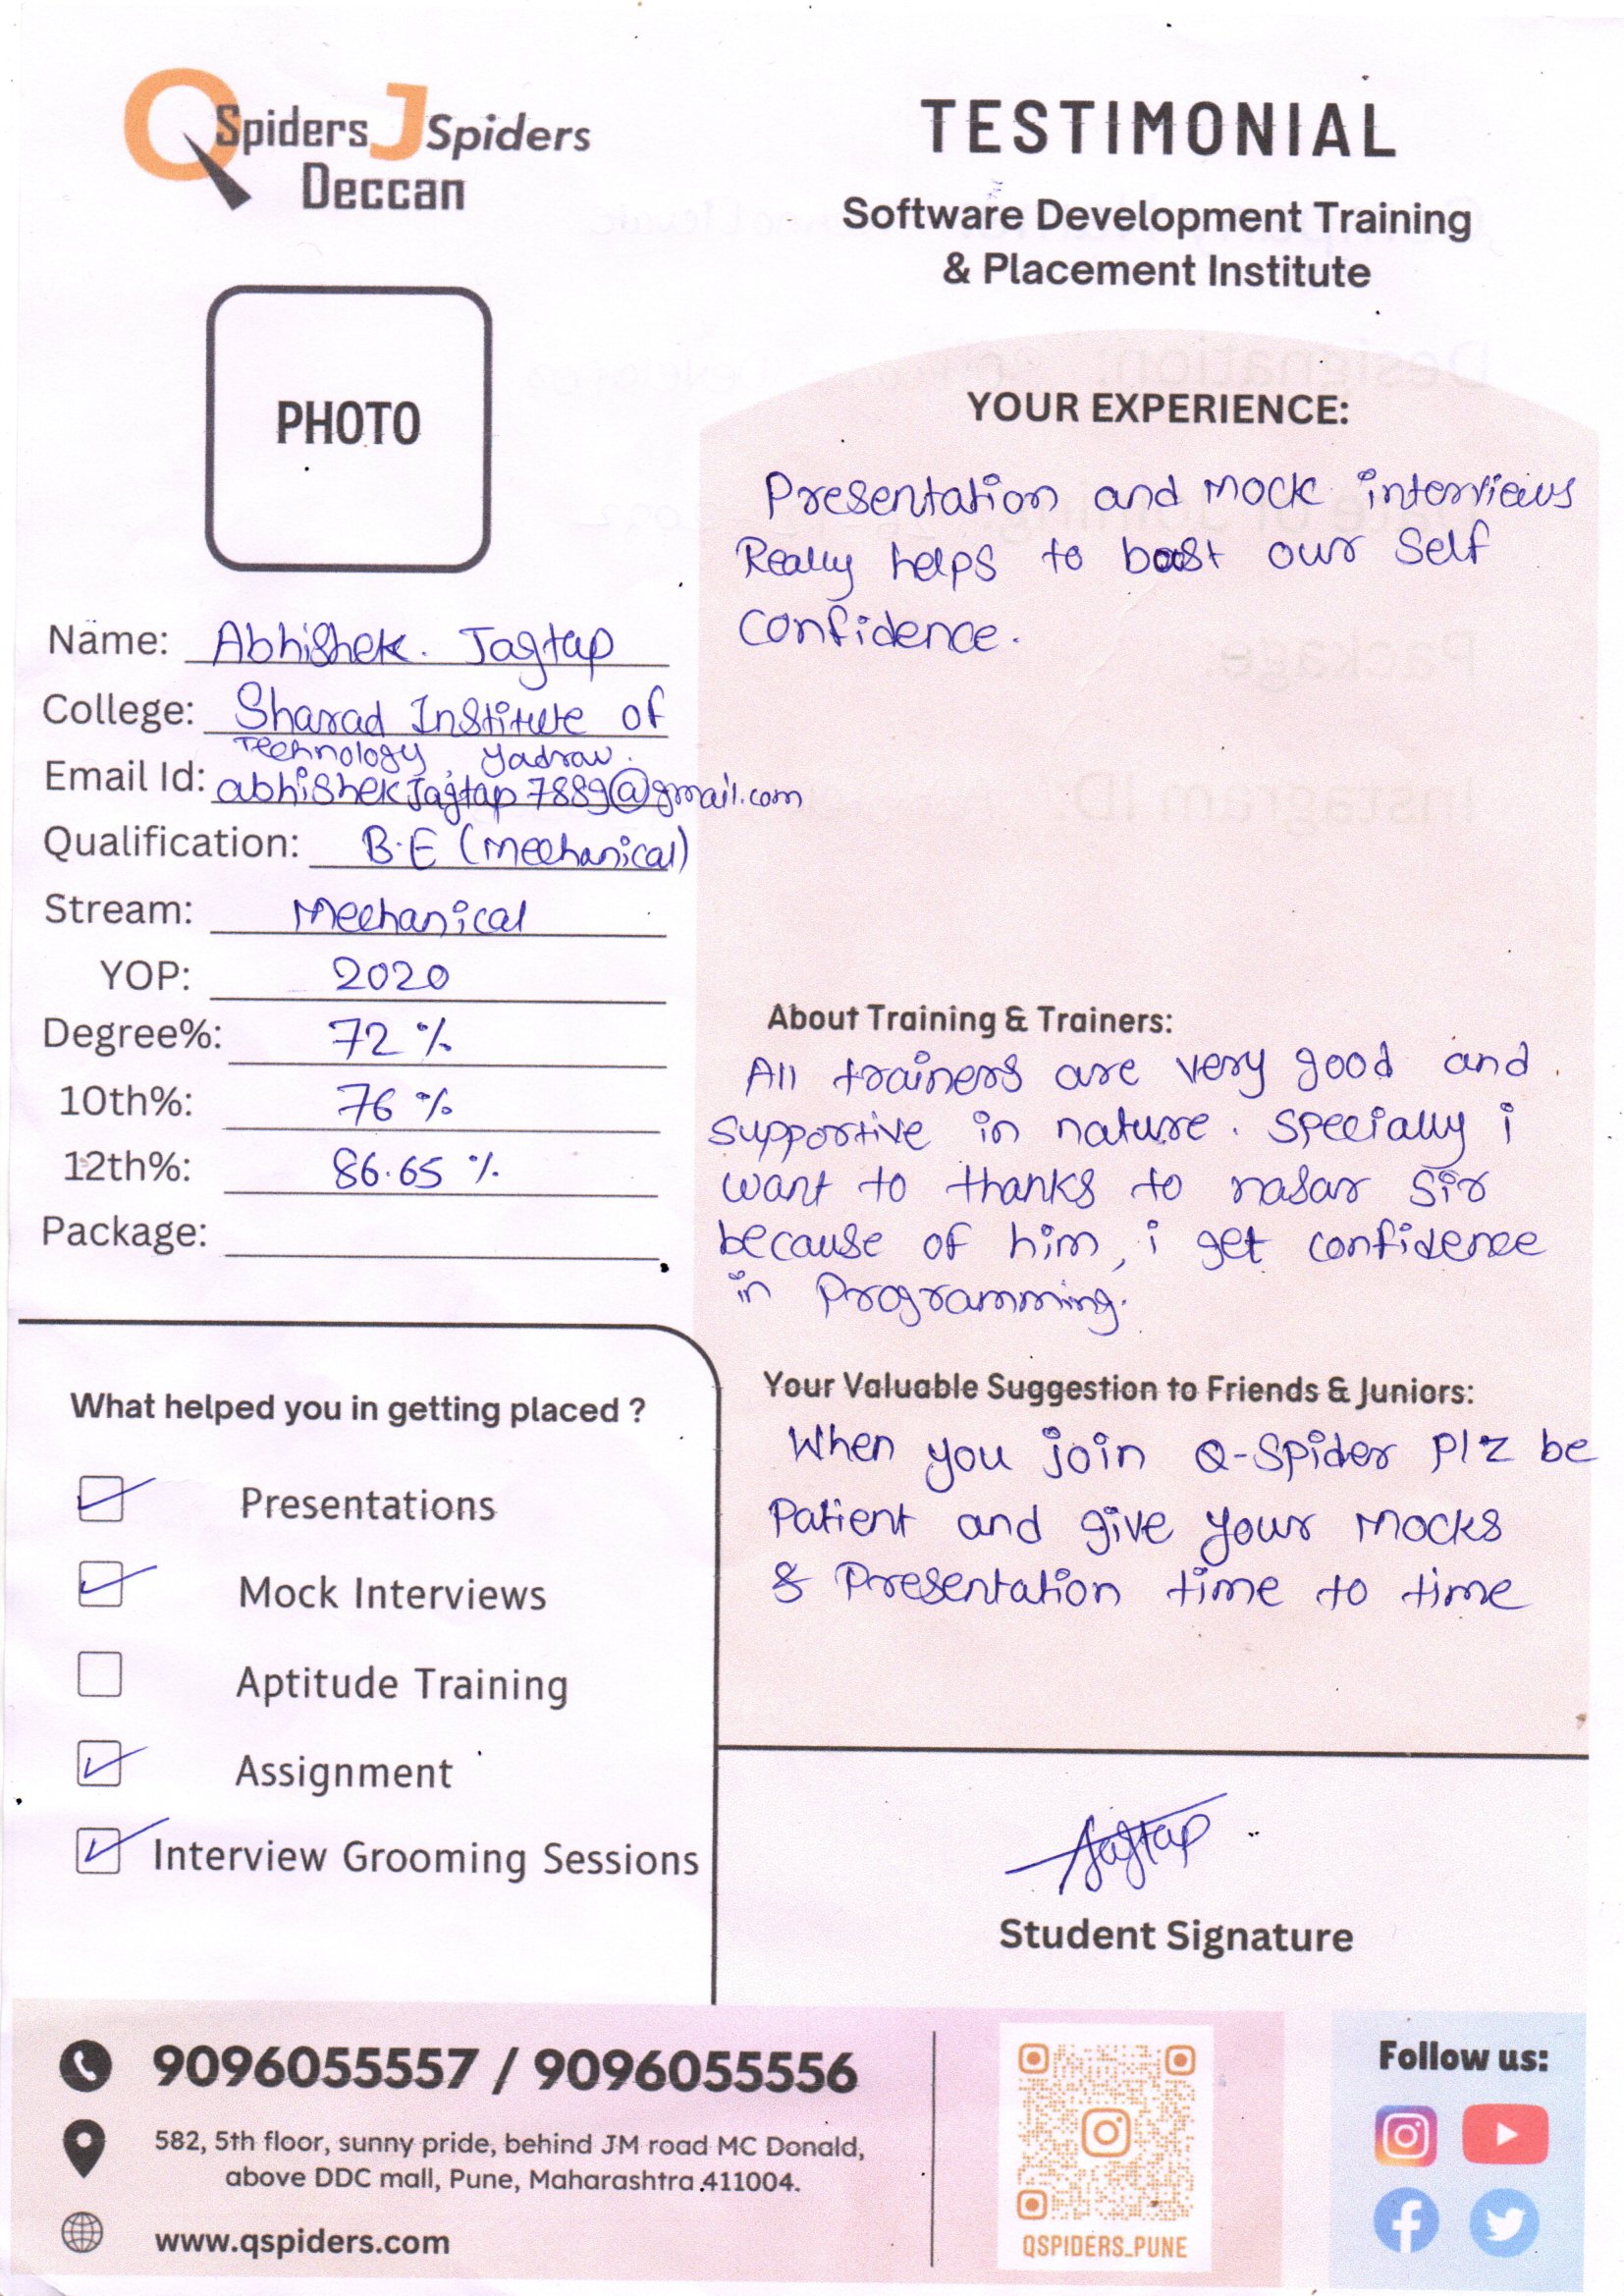 QSpiders JSpiders
Deccan
TESTIMONIAL
Software Development Training
& Placement Institute
PHOTO
Name: Abhishek. Jagtap
College: Sharad Institute of
Technology, Yadrav.
Email Id: abhishekjagtap7889@gmail.com
Qualification: B.E (Mechanical)
Stream: Mechanical
YOP: 2020
Degree%: 72 %
10th%: 76 %
12th%: 86.65 %
Package:
What helped you in getting placed ?
Presentations
Mock Interviews
Aptitude Training
Assignment
Interview Grooming Sessions
YOUR EXPERIENCE:
Presentation and Mock interviews
Really helps to boost our Self
Confidence.
About Training & Trainers:
All trainers are very good and
supportive in nature. Specially i
want to thanks to nasar Sir
because of him, i get confidence
in Programming.
Your Valuable Suggestion to Friends & Juniors:
When you join Q-Spider Plz be
Patient and give your Mocks
& Presentation time to time
Jagtap
Student Signature
9096055557 / 9096055556
582, 5th floor, sunny pride, behind JM road MC Donald,
above DDC mall, Pune, Maharashtra.411004.
www.qspiders.com
QSPIDERS_PUNE
Follow us: